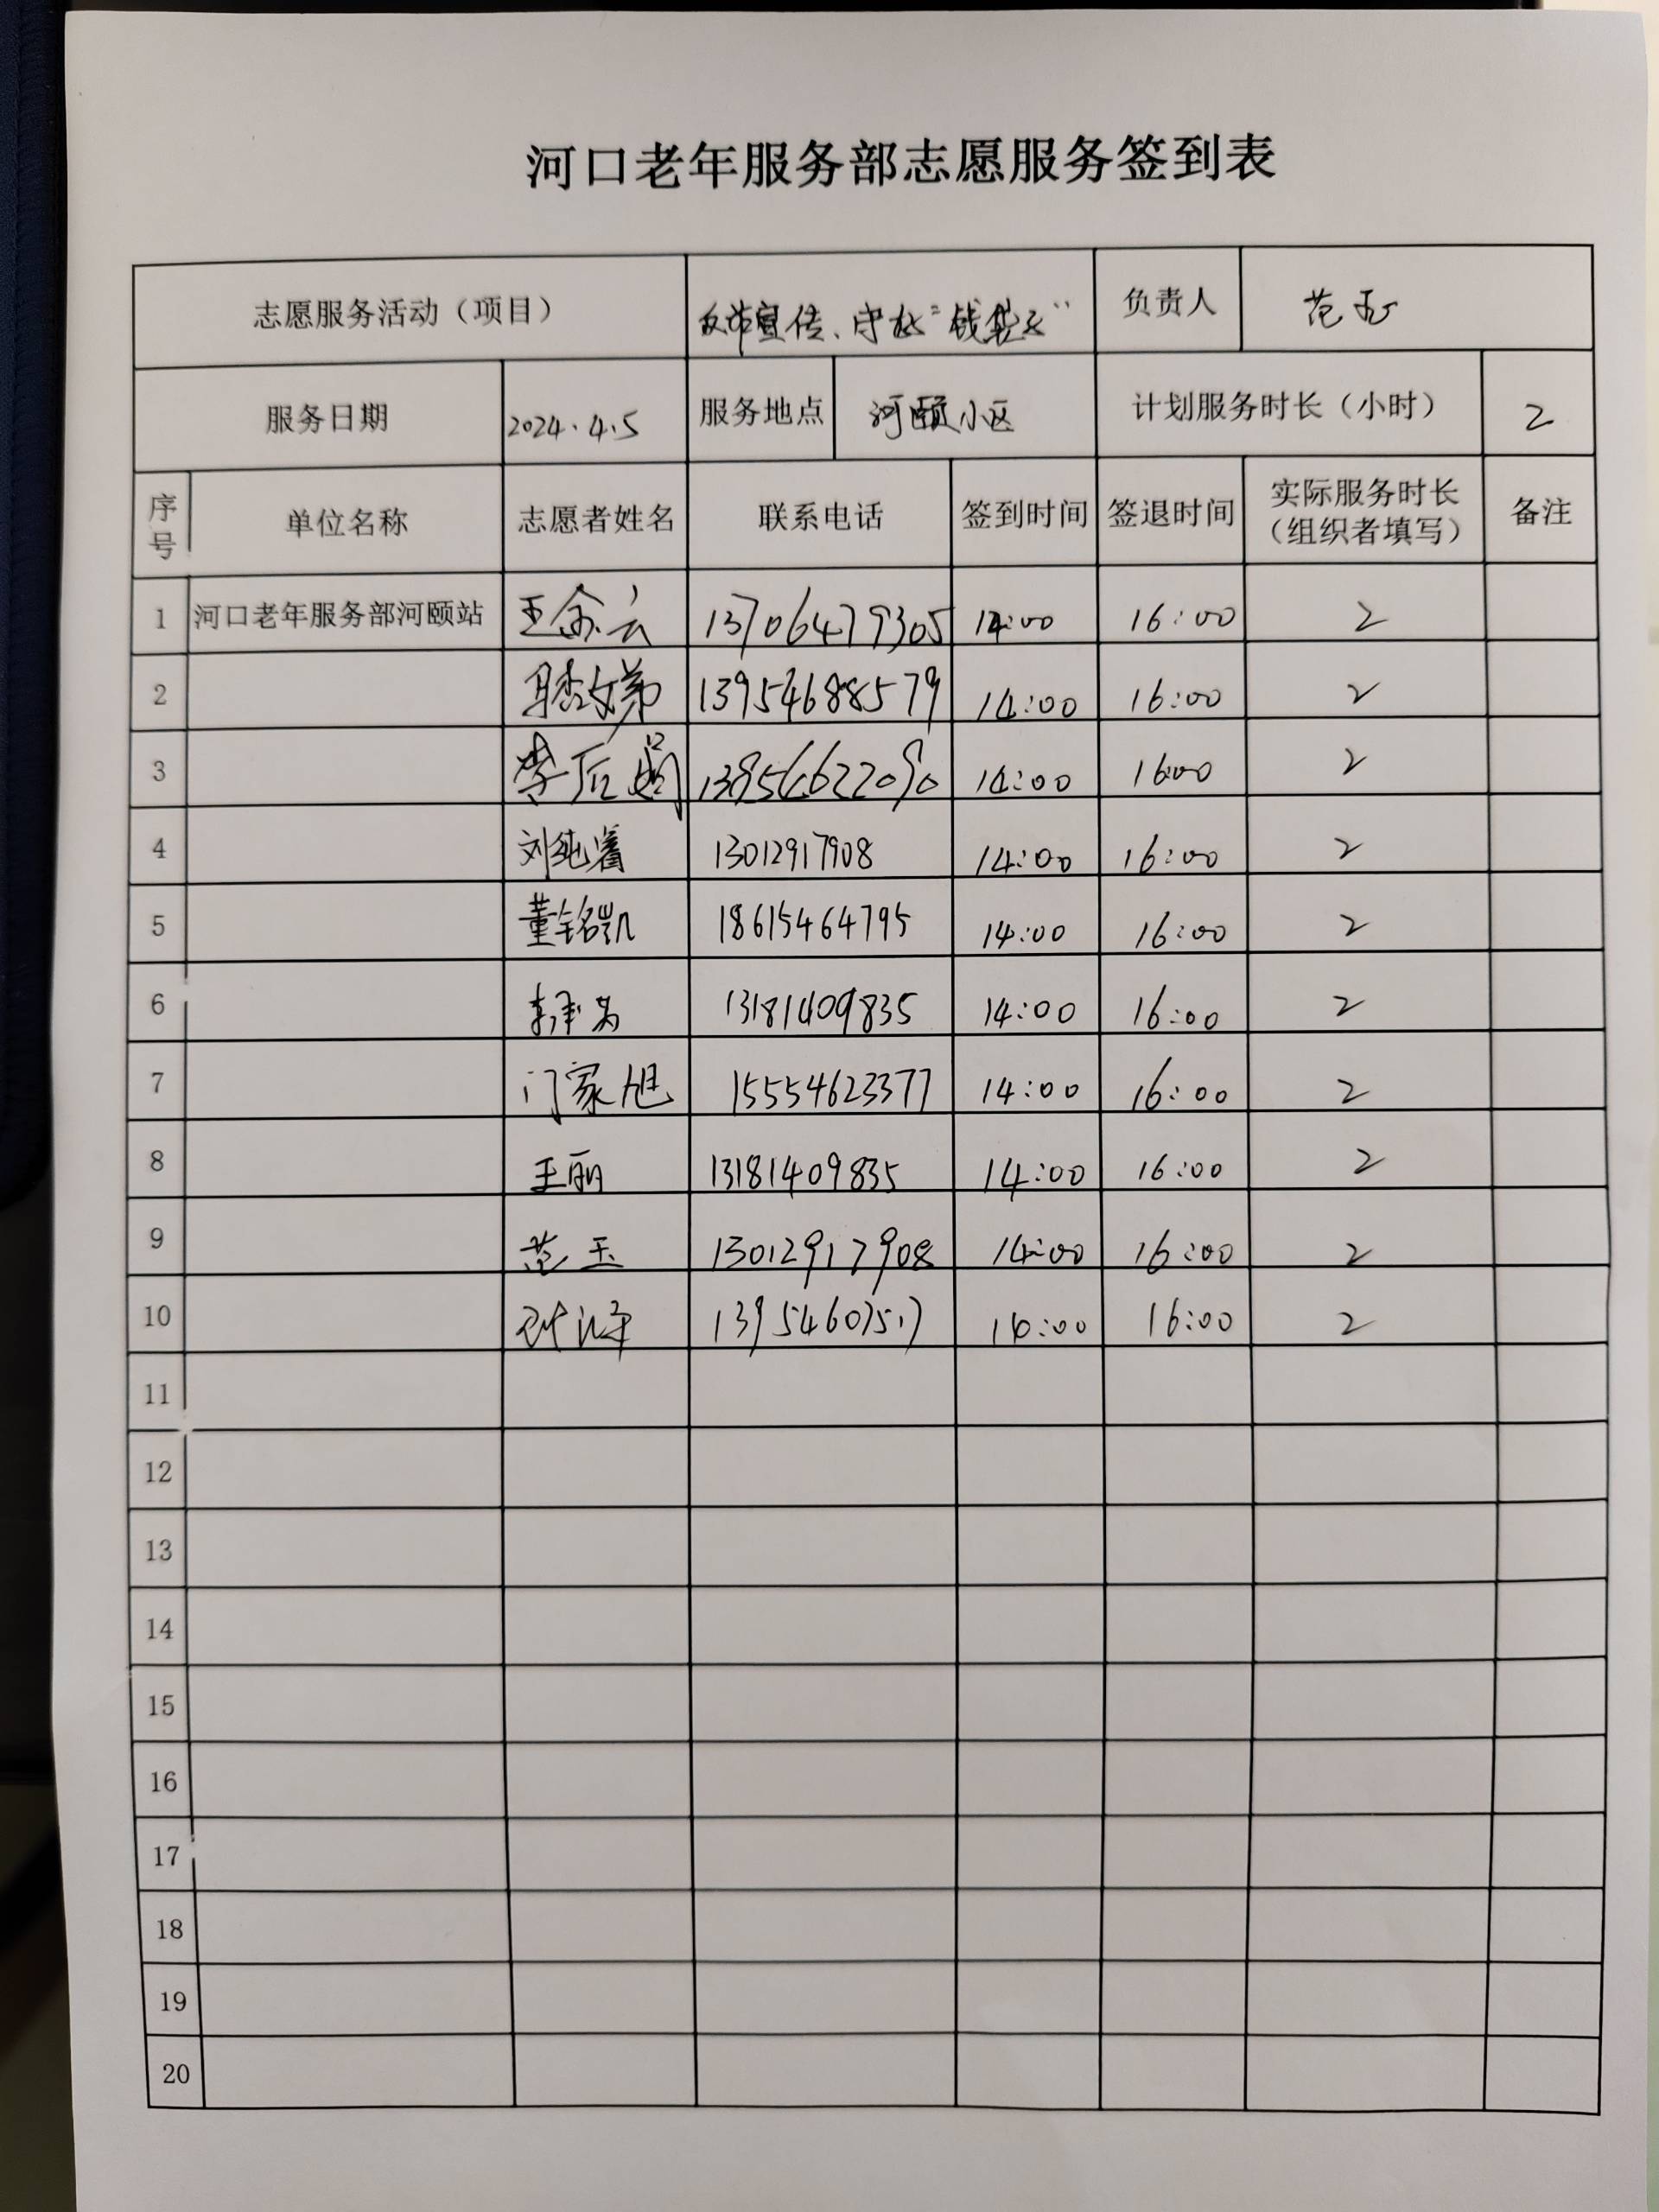 河口老年服务部志愿服务签到表
志愿服务活动（项目） 反诈宣传、守好“钱袋子” 负责人 范玉
服务日期 2024.4.5 服务地点 河颐小区 计划服务时长（小时） 2
序号 单位名称 志愿者姓名 联系电话 签到时间 签退时间 实际服务时长（组织者填写） 备注
1 河口老年服务部河颐站 13706479305 14:00 16:00 2
2 13954688579 14:00 16:00 2
3 13954622090 14:00 16:00 2
4 13012917908 14:00 16:00 2
5 董铭凯 18615464795 14:00 16:00 2
6 13181409835 14:00 16:00 2
7 门家旭 15554623377 14:00 16:00 2
8 王丽 13181409835 14:00 16:00 2
9 范玉 13012917908 14:00 16:00 2
10 16:00 2
11
12
13
14
15
16
17
18
19
20